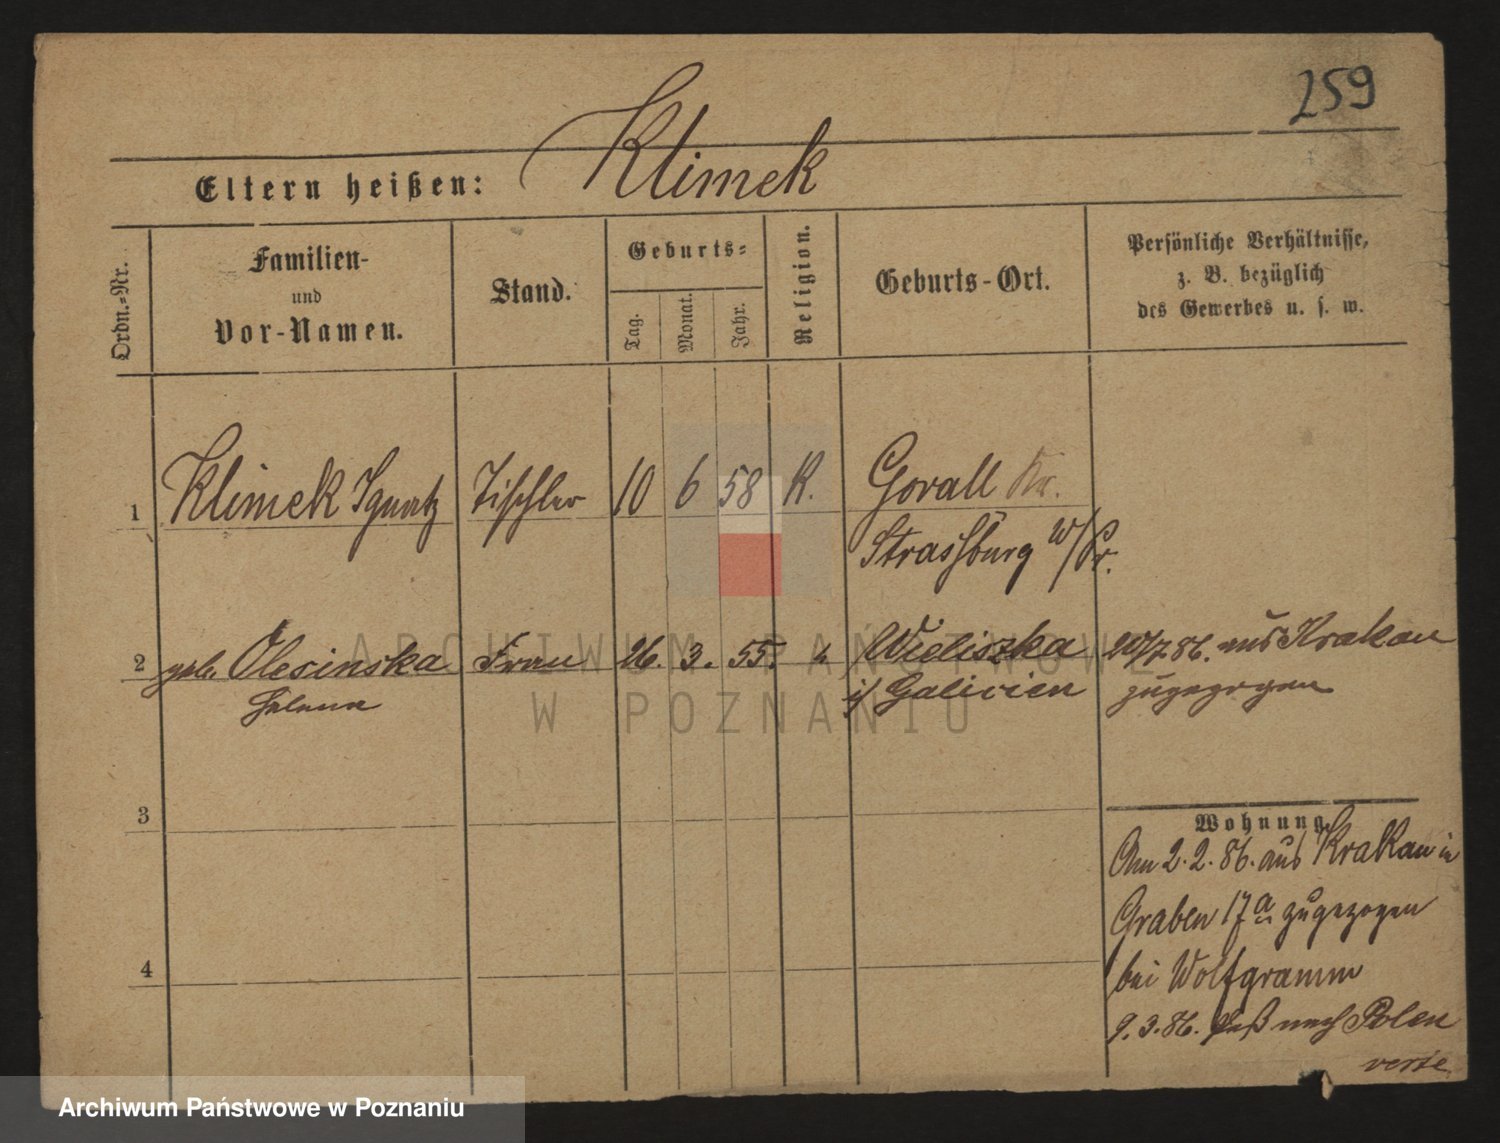 259
Eltern heißen: Klimek
Ordn.-Nr.
Familien-
und
Vor-Namen.
Stand.
Geburts-
Tag.
Monat.
Jahr.
Religion.
Geburts-Ort.
Persönliche Verhältnisse,
z. B. bezüglich
des Gewerbes u. s. w.
1 Klimek Ignatz Tischler 10 6 58 K. Gorall Kr.
Strassburg W/Pr.
2 geb. Olesinska Frau 26. 3. 55. " Wieliszka 20/7 86. aus Krakau
Helena i/ Galicien zugezogen
3
Wohnung.
Am 2.2.86. aus Krakau in
Graben 17a zugezogen
4
bei Wolfgramm
9.3.86. Paß nach Polen
verte
ARCHIWUM PAŃSTWOWE
W POZNANIU
Archiwum Państwowe w Poznaniu